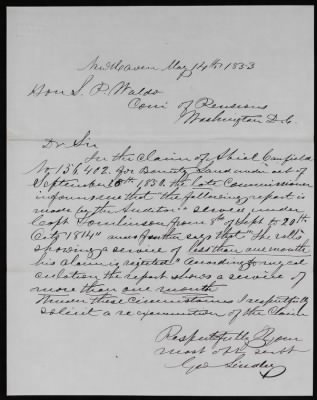 New Haven May 14th 1853
Hon L. P. Waldo
Com of Pensions
Washington D.C.
Dr Sir
In the Claim of Abiel Canfield
No 136.402. for Bounty Land under act of
September 28th 1850. the late Commissioner
informs me that "the following report is
made by the Auditor" Service under
Capt Tomlinson from 8th of Sept to 20th
Oct 1814" and further says that "The rolls
showing a service of less than one month
his claim is rejected" According to my cal
culation the report shows a service of
more than one month
Under these circumstances I respectfully
solicit a re examination of the Claim
Respectfully Your
most obt servt
Geo